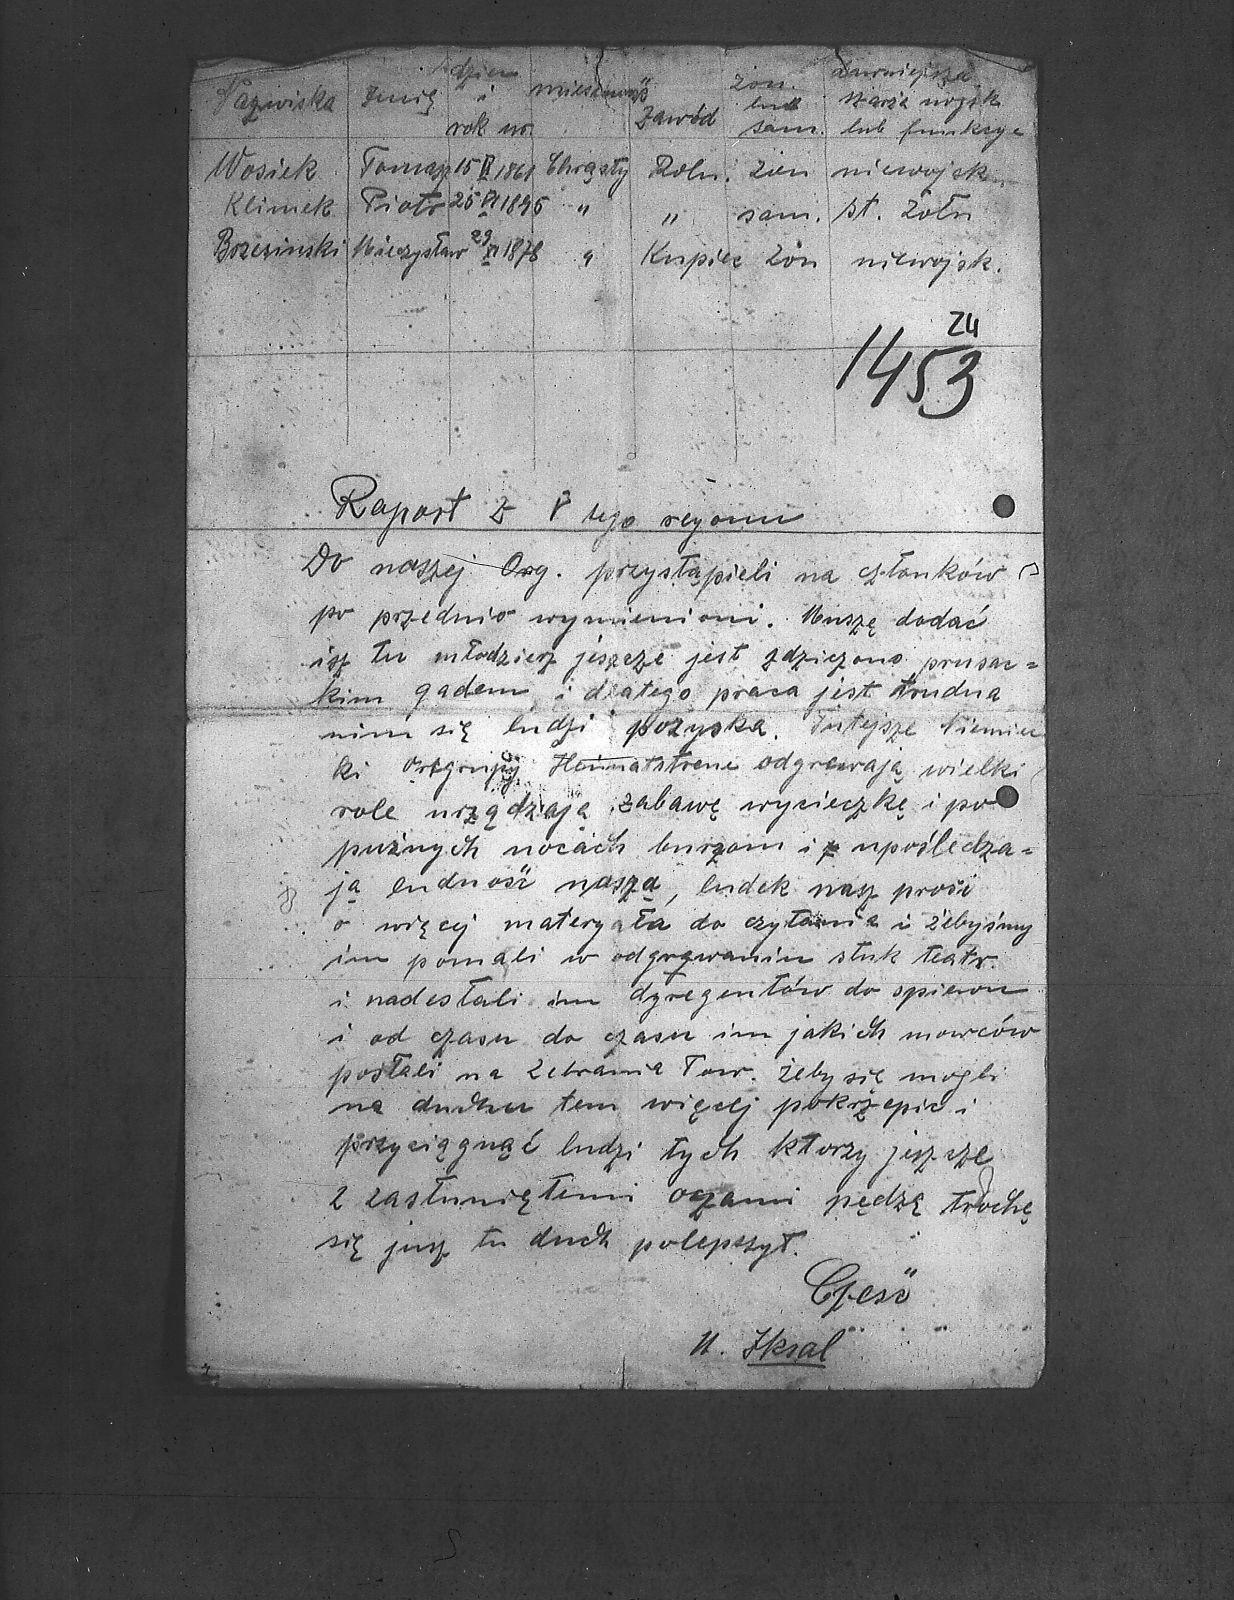 Nazwiska Imię dzień i rok ur. miescowość Zawód żon. lub sam. Dawniejsza szarża wojsk. lub funkcye
Wosiek Tomasz 15 II 1861 Chrąsty Roln. żon niewojsk.
Klimek Piotr 25 VI 1895 " " sam. st. żołn
Brzezinski Mieczysław 29 XI 1878 " Kupiec żon niewojsk.
24
1453
Raport z V tego reyonu
Do naszej Org. przystąpieli na członków
po przednio wymienioni. Muszę dodać
isz tu młodziesz jeszcze jest zdziczono prusac=
kim gadem i dlatego praca jest trudna
nim się ludzi pozyska. Tutejsze Niemiec
ki Ortgrupy Heimatstreue odgrewają wielki
role urządzają zabawę wycieczkę i po
puźnych nocach burzom i upośledza=
ją ludność naszą, ludek nasz prosi
o więcej materyała do czytania i żebyśmy
im pomali w odgrywaniu stuk teatr.
i nadesłali im dyregentów do spiewu
i od czasu do czasu im jakich mowców
posłali na Zebrania Tow. żeby się mogli
na duchu tem więcej pokrzepic i
przyciągnąć ludzi tych ktorzy jeszcze
z zasłuniętemi oczami pędzą trochę
się jusz tu duch polepszył.
Cześć
Iksal